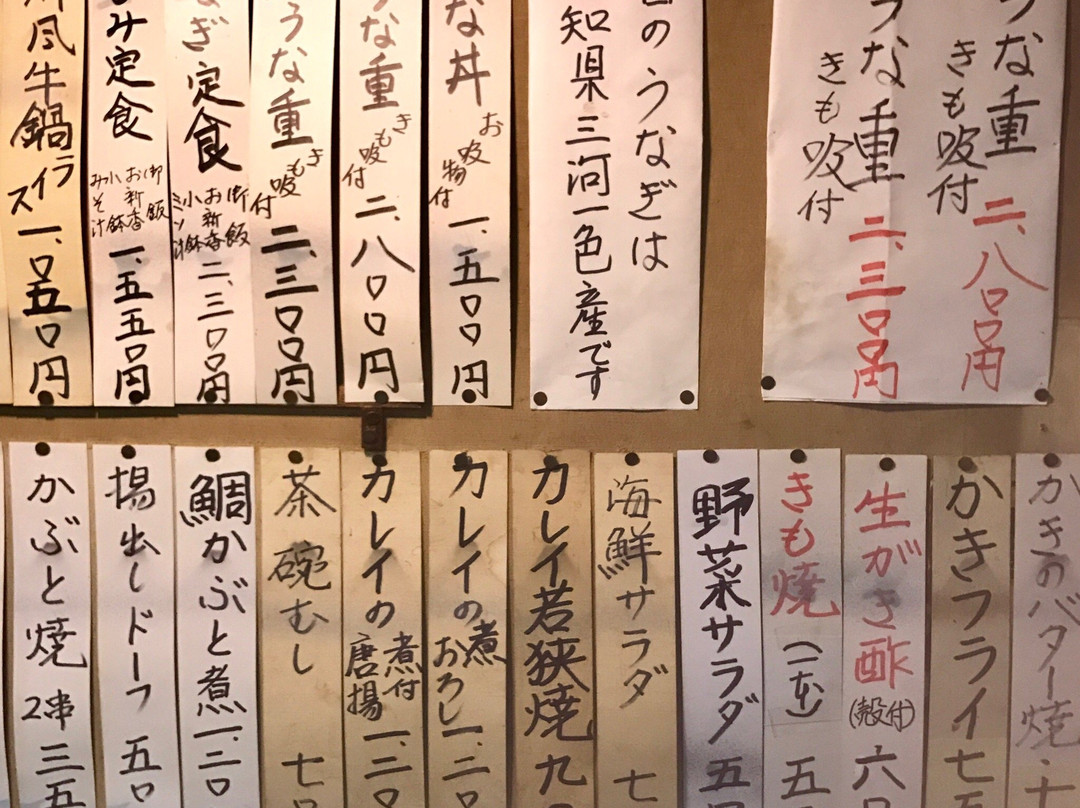 うな重
きも吸付
二、八〇〇円
うな重
きも吸付
二、三〇〇円
のうなぎは
知県三河一色産です
な丼
お吸物付
一、五〇〇円
うな重
きも吸付
二、八〇〇円
うな重
きも吸付
二、三〇〇円
なぎ定食
御飯
お新香
小鉢
ミソ汁
二、三〇〇円
み定食
御飯
お新香
小鉢
みそ汁
一、五五〇円
風牛鍋
ライス
一、〇五〇円
かきのバター焼
かきフライ
七
生がき酢
(殻付)
六
きも焼
(一本)
五
野菜サラダ
五
海鮮サラダ
七
カレイ若狭焼
九
カレイの
煮
おろし
一、二〇
カレイの
煮付
唐揚
一、二〇
茶碗むし
七
鯛かぶと煮
一、三〇
揚出しドーフ
五〇
かぶと焼
2串
三五